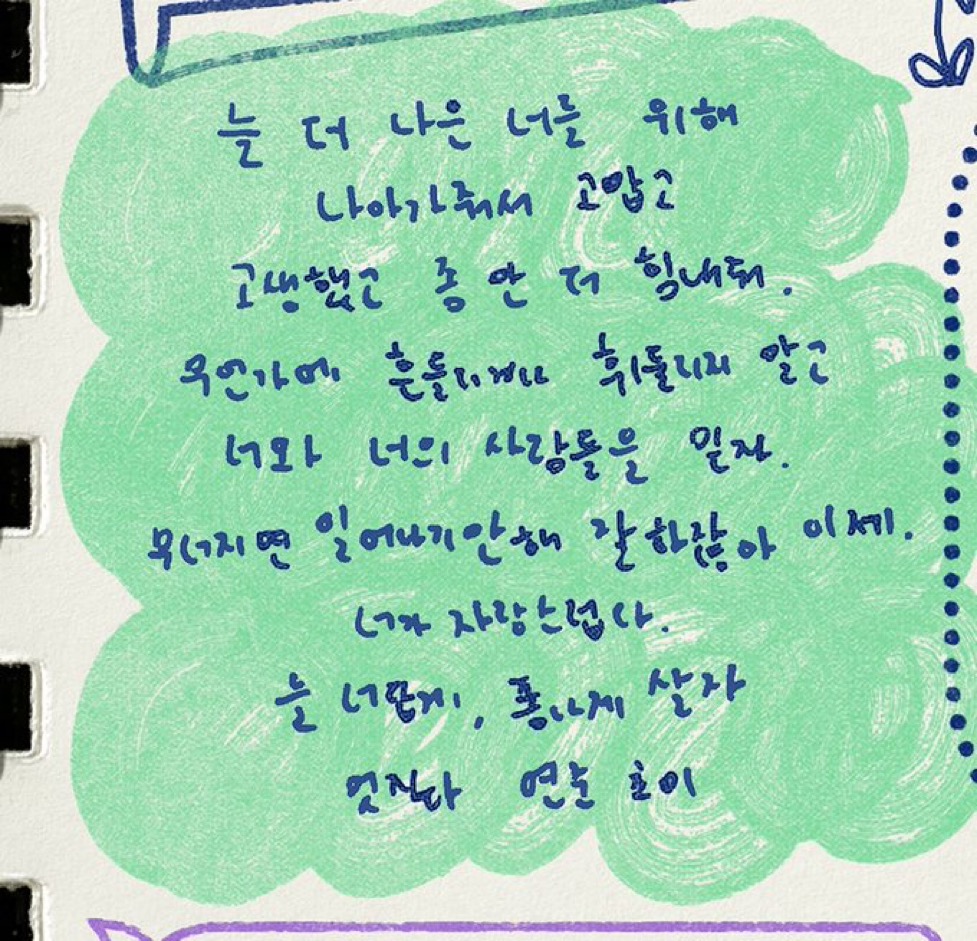 늘 더 나은 너를 위해
나아가줘서 고맙고
고생했고 좀 만 더 힘내줘.
무언가에 흔들리거나 휘둘리지 말고
너와 너의 사람들을 믿자.
무너지면 일어나기만해 잘하잖아 이제.
너가 자랑스럽다.
늘 너답게, 폼나게 살자
멋지다 연준 초이